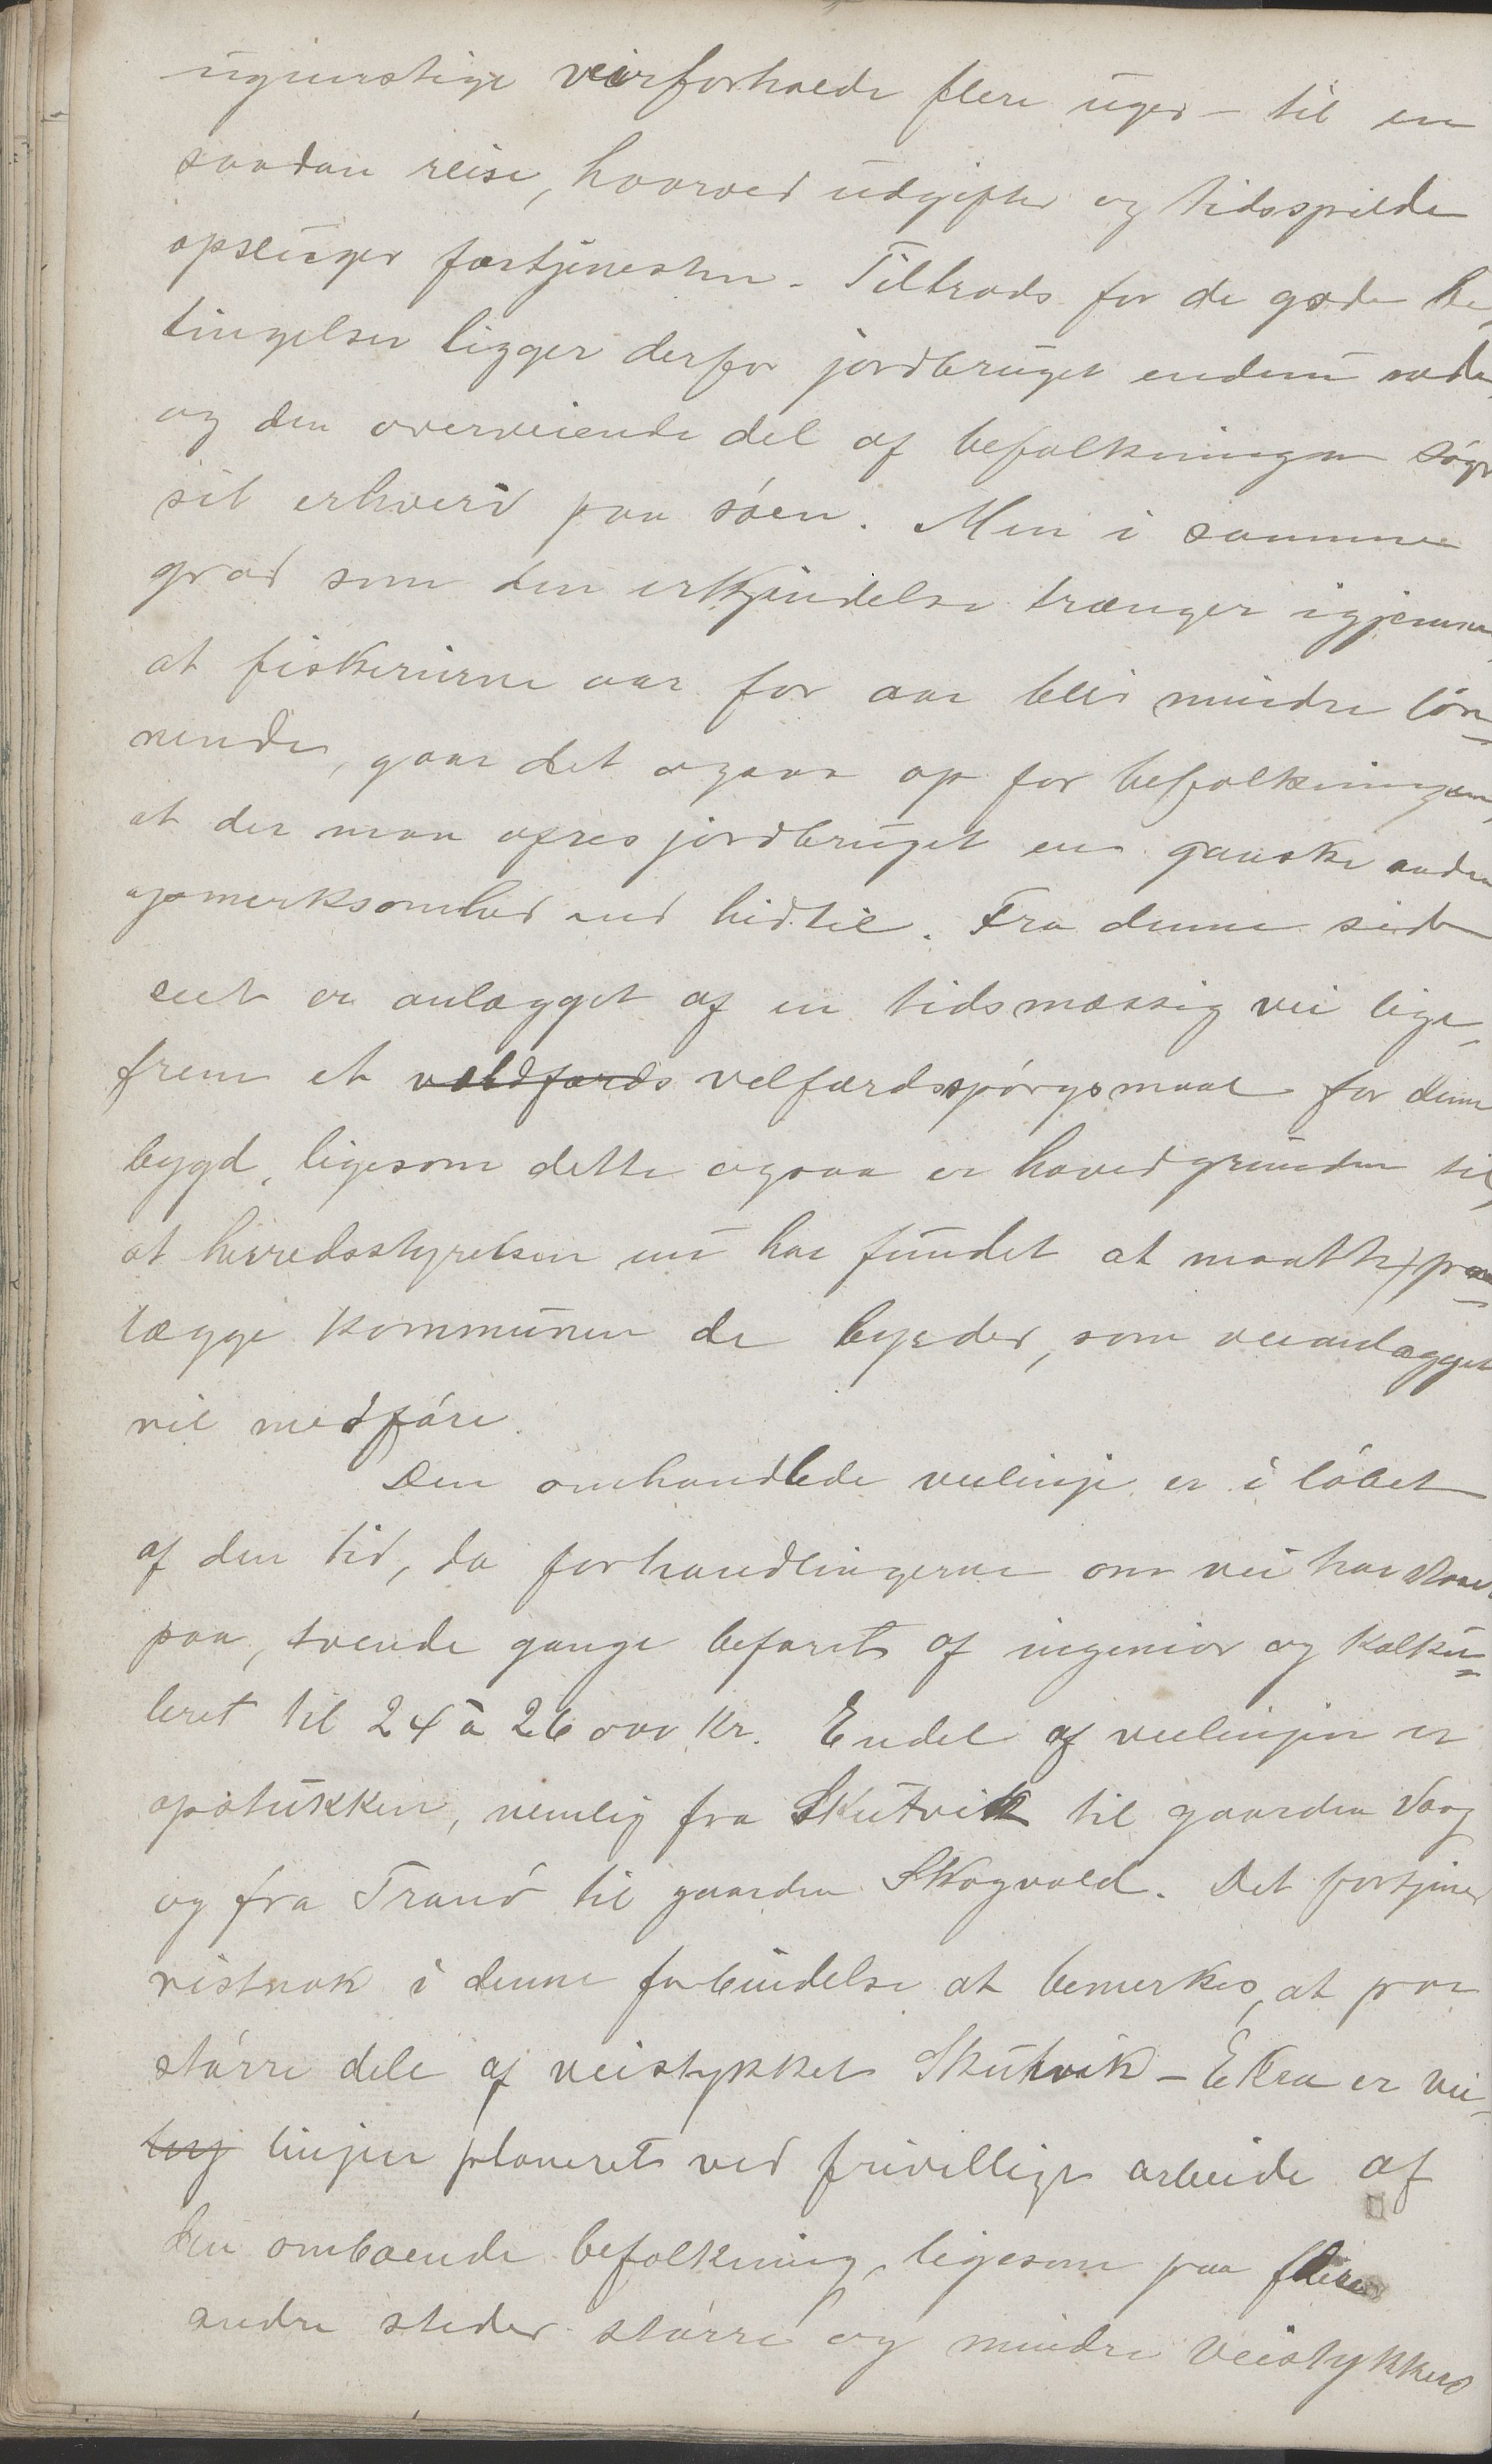 ugunstige veirforholde flere uger – til en
saadan reise, hvorved udgifter og tidsspilde
opsluger fortjenesten. Tiltrods for de gode be-
tingelser ligger derfor jordbruget endnu nede,
og den overveiende del af befolkningen søger
sit erhverv paa søen. Men i samme
grad som den erkjendelse trænger igjennem,
at fiskerierne aar for aar blir mindre løn-
nende, gaar det ogsaa op for befolkningen,
at der maa ofres jordbruget en ganske anden
opmerksomhed end hidtil. Fra denne side
seet er anlægget af en tidsmæssig vei lige-
frem et veldfærds velfærdsspørgsmaal for denne
bygd, ligesom dette ogsaa er hovedgrunden til,
at herredsstyrelsen nu har fundet at maatte paa-
lægge kommunen de byrder, som veianlægget
vil medføre.
Den omhandlede veilinje er i løbet
af den tid, da forhandlingerne om vei har staaet
paa, tvende gange befaret af ingeniør og kalku-
leret til 24 à 26 000 kr. Endel af veilinjen er
opstukken, nemlig fra Skutvik til gaarden Vaag
og fra Tranø til gaarden Skogvold. Det fortjener
vistnok i denne forbindelse at bemerkes, at paa
større dele af veistykket Skutvik – Ekra er vei-
linj linjen planeret ved frivilligt arbeide af
den omboende befolkning, ligesom paa flere
andre steder større og mindre veistykker